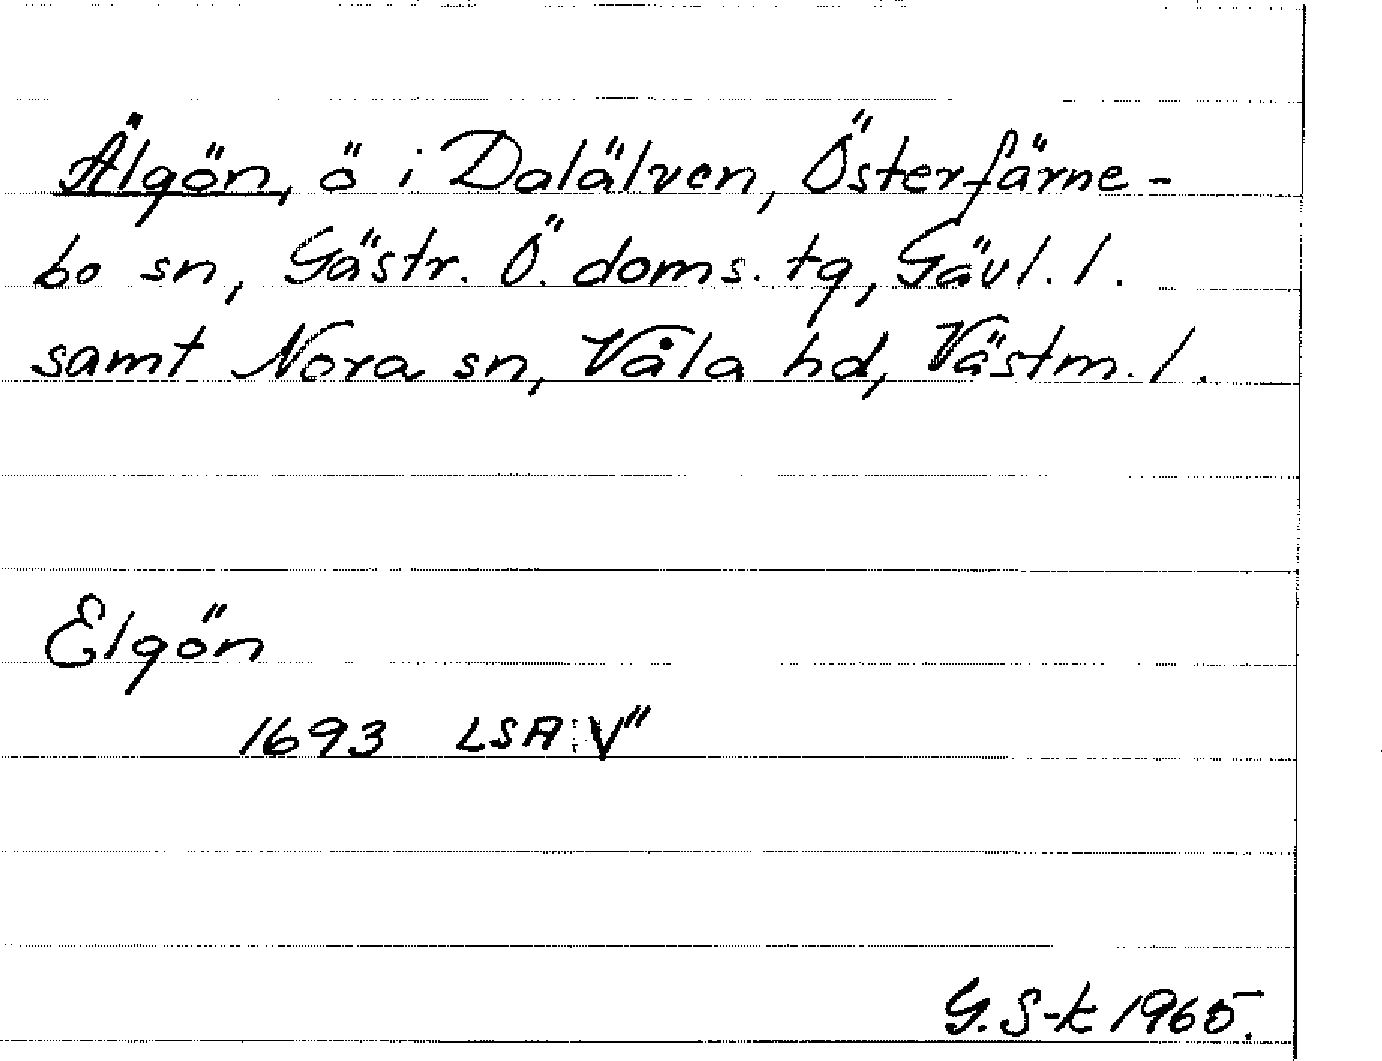 Älgön, ö i Dalälven, Österfärne-
bo sn, Gästr. Ö. doms. tg, Gävl. l.
samt Nora sn, Våla hd, Västm. l.
Elgön
1693 LSA: V"
G. S-k 1965.